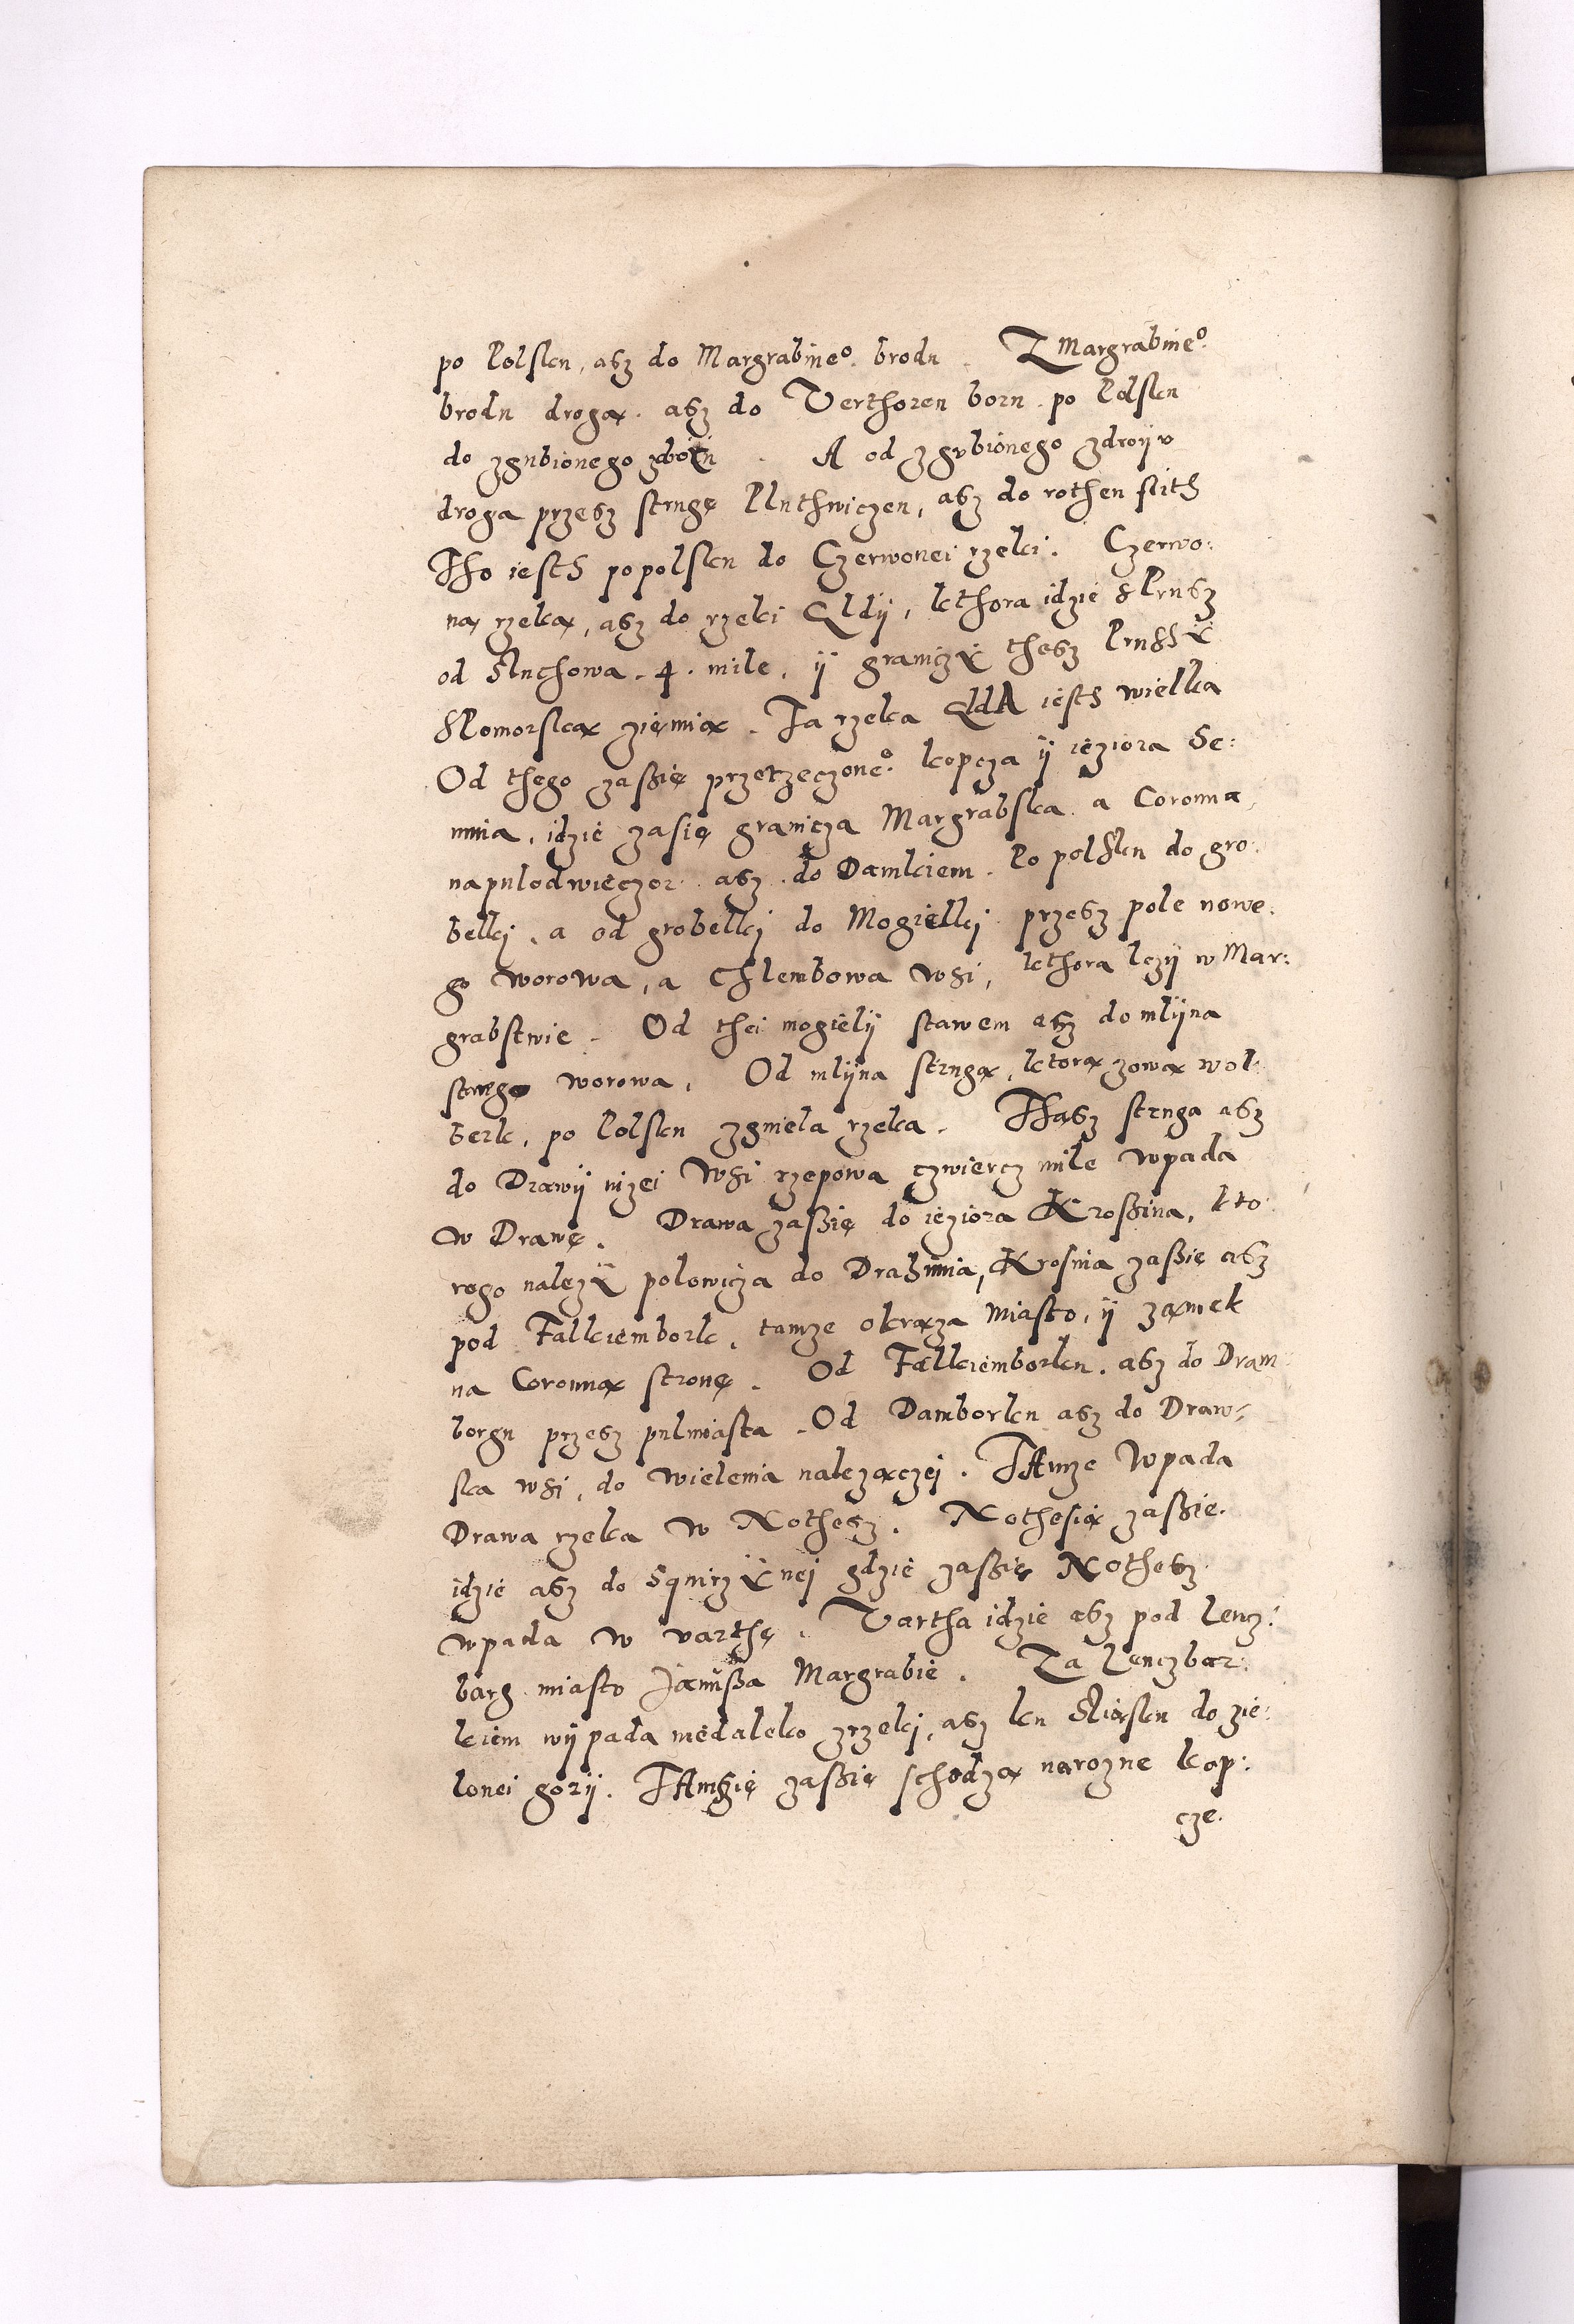 po Polsku, asz do Margrabineo. brodu. Z Margrabineo.
brodu drogą. asz do Verthoren born. po Polsku
do zgubionego zdroiu. A od zgubionego zdroyv
droga przesz strugę Pluthwiczen, asz do rothen flith
Tho iesth po polsku do Czerwonei rzeki. Czerwo:
ną rzeką, asz do rzeki Qldÿ, kthora idzie s Prusz
od Sluchowa. 4. mile. ÿ graniczÿ thesz Prussÿ
s Pomorską ziemią. Ta rzeka QldA iesth wielka
Od thego zassię przerzeczoneo. kopcza ÿ ieziora Se:
mnia, idzie zasię granicza Margrabska a Coronna
na pulodwieczor asz do Damkiem. Po polsku do gro:
belki, a od grobelki do Mogielki przesz pole nowe:
go worowa, a Chlembowa wsi, kthora lezÿ w Mar:
grabstwie. Od thei mogielÿ stawem asz do mlÿna
starego worowa. Od mlÿna strugą, ktorą zową wol:
berk, po Polsku zgniela rzeka. Thasz struga asz
do Drawÿ nizei wsi rzepowa czwiercz mile wpada
w Drawę. Drawa zassię do ieziora Krossina, kto:
rego nalezÿ polowicza do Drahimia, Krosnia zassie asz
pod Falkiembork, tamze okrąza miasto, ÿ zamek
na Coronną stronę. Od Falkiemborku. asz do Dram:
borgu przesz pulmiasta. Od Damborku asz do Draw:
ska wsi, do wielenia nalezączei. TAmze wpada
Drawa rzeka w Nothesz. Nothesią zassie.
idzie asz do Squirzÿnei gdzie zassię Nothesz
wpada w varthę. Vartha idzie asz pod Lencz:
barg miasto Janussa Margrabie. Za Lenczbar:
kiem wÿpada niedaleko zrzeki, asz ku Sliąsku do zie:
lonei gorÿ. TAmgię zassię schodzą narozne kop:
cze.